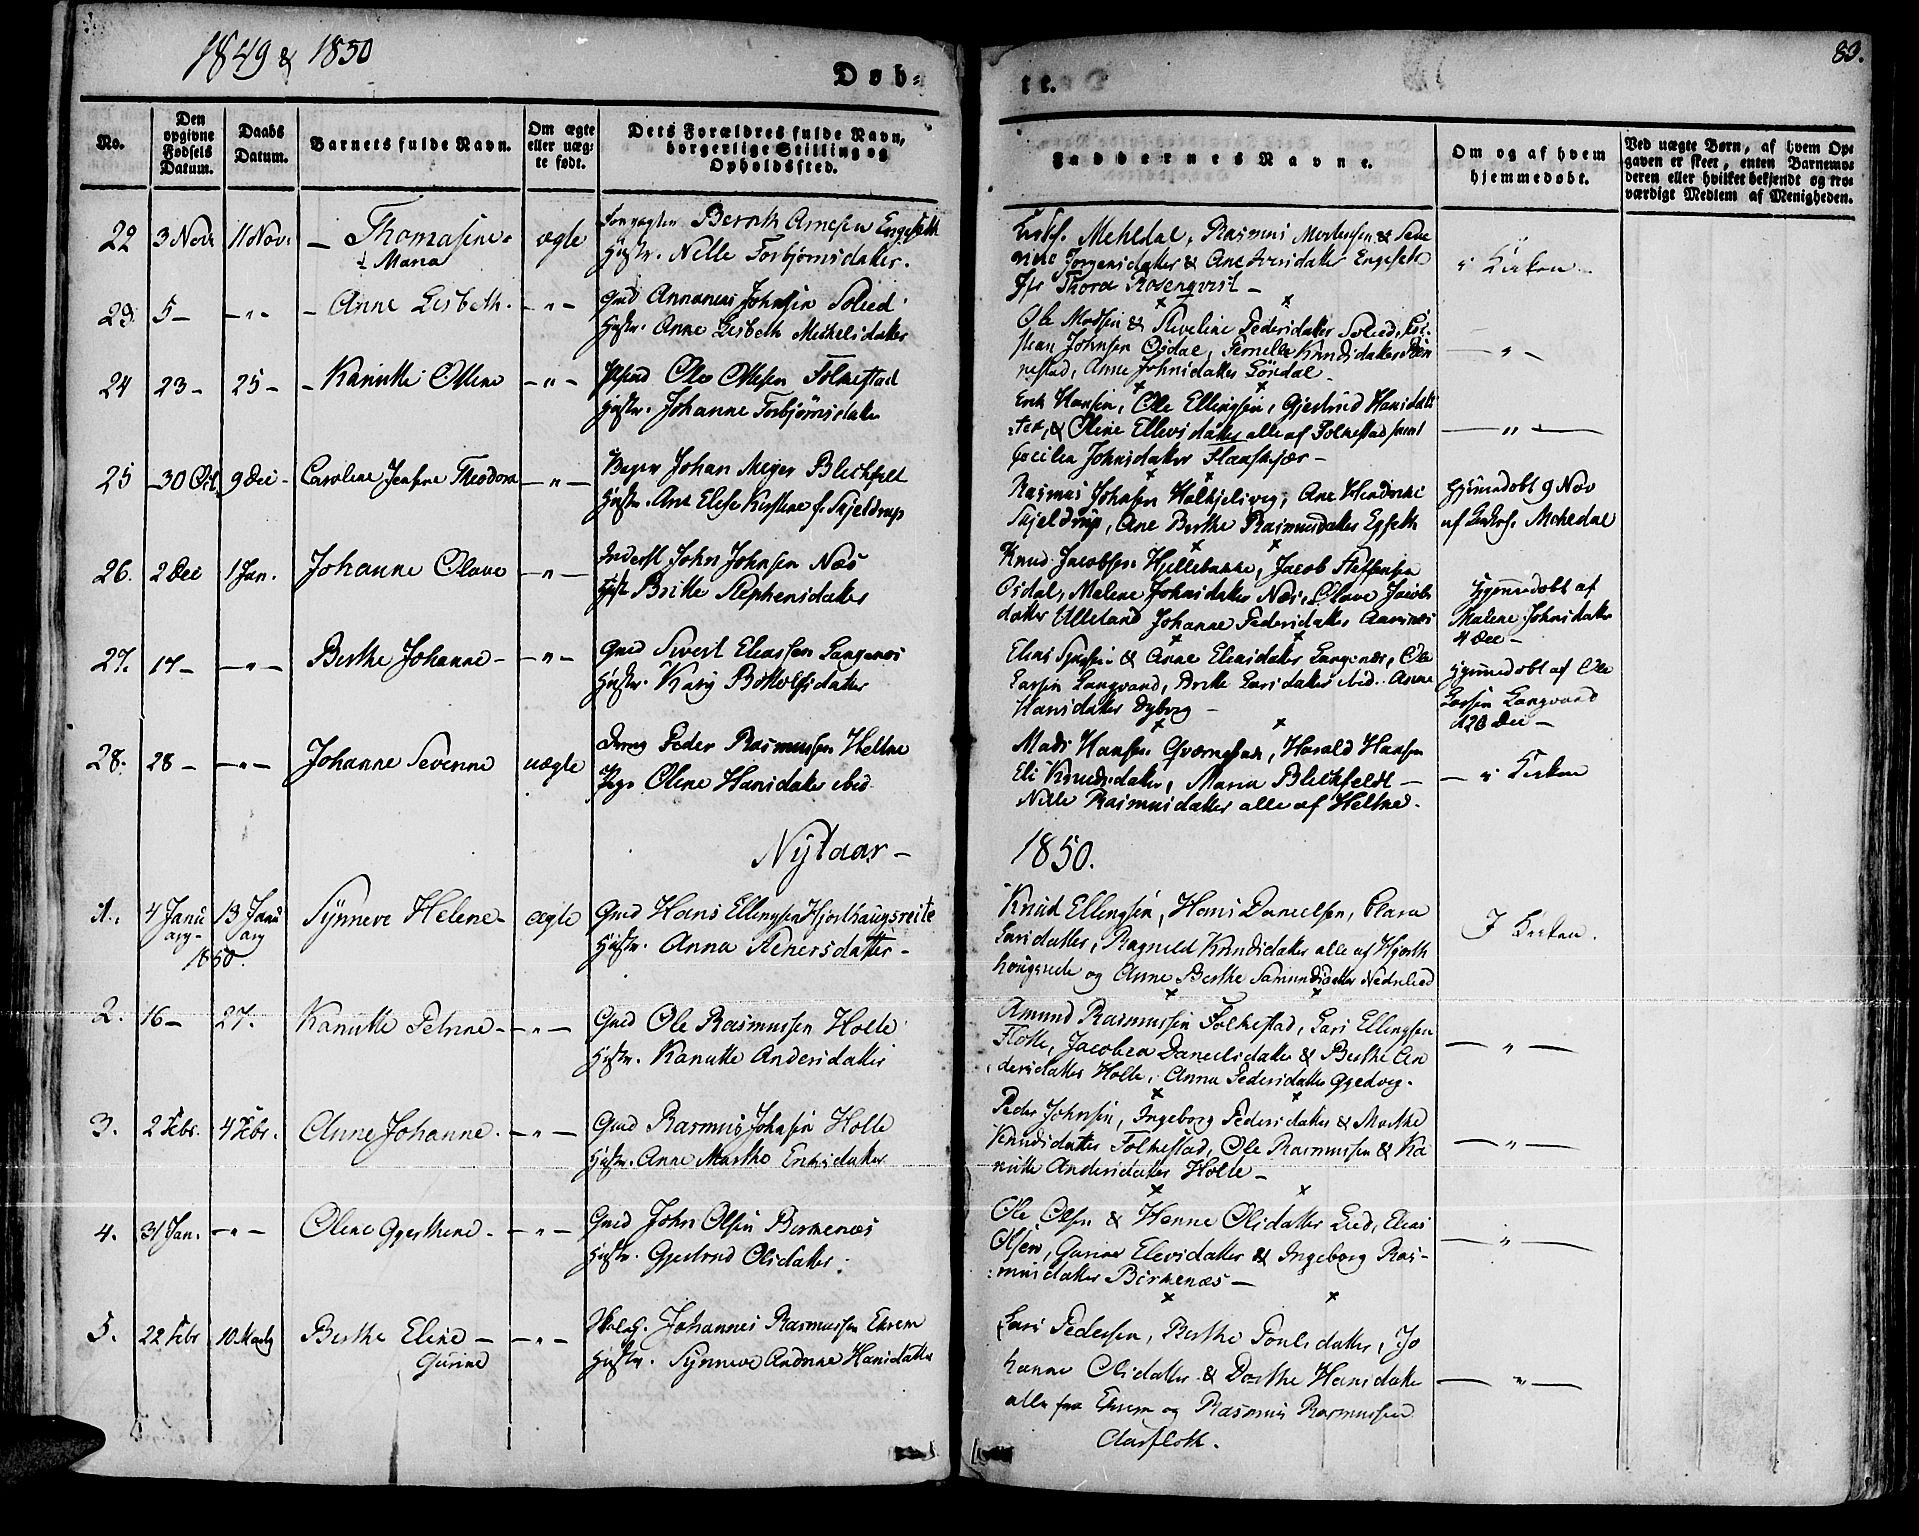 1849 & 1850
Døb-
te.
83.
No.
Den opgivne Fødsels Datum.
Daabs Datum.
Barnets fulde Navn.
Om ægte eller uæg- te født.
Dets Forældres fulde Navn, borgerlige Stilling og Opholdssted.
Faddernes Navne.
Om og af hvem hjemmedøbt.
Ved uægte Børn, af hvem Op- gaven er skeet, enten Barnemo- deren eller hvilket bekjendt og tro- værdige Medlem af Menigheden.
22 3 Nov: 11 Nov: – Thomasine
Maria
ægte
Bernth Arnesen Engeseth
Hustr. Nille Torbjørnsdatter.
Mehldal, Rasmus Mortensen & Seve
rine Jørgensdatter & Ane Iversdatter Engeseth
Jfr Thora Rosenqvist –
i Kirken –
23. 5 – – " – – Anne Lisbeth. – " –
Gmd Annanias Johnsen Solied
Hustr. Anne Lisbeth Mikkelsdatter
Ole Madsen & Seveline Pedersdatter Solied,
Johnsen Osdal, Pernelle Knudsdatter
nestad, Anne Johnsdatter –
– " –
24 23 – 25 – – Kanutte Oline – " –
Ole Olsen Folkestad
Hustr. Johanne Torbjørnsdatter
Erik Hansen, Ole Ellingsen, Gjertrud Hansdat
ter, & Oline Ellevsdatter alle af Folkestad samt
Cecilia Johnsdatter –
– " –
25 30 Oct. 9 Dec – Caroline Jensine Theodora – " –
Johan Meyer Blichfeldt
Hustr. Ane Elise Kirstine f. Skjeldrup
Rasmus Johnsen Holkjelsvig, Ane Hendrikke
Skjeldrup, Ane Berthe Rasmusdatter Egseth
Hjemmedøbt 9 Nov
af Mehldal
26. 2 Dec 1 Jan. Johanne Olave – " –
Inderst John Johnsen Næs
Hustr Britte Stephensdatter
Knud Jacobsen Hjellebakke, Jacob Steffensen
Osdal, Malene Johnsdatter Næs, Olave Jacobs
datter Ulleland Johanne Pedersdatter Aarsnæs
Hjemmedøbt af
Malene Johnsdatter
4 Dec –
27. 17 – – " – Berthe Johanne – – " –
Gmd Sivert Eliassen Langenæs
Hustr. Kary Bottolfsdatter
Elias & Anne Eliasdatter Langenæs, Ole
Larsen Langvand, Britte Larsdatter ibid. Anne
Hansdatter Dyberg –
Hjemmedøbt af Ole
Larsen Langvand
Dec –
28. 28 – – " – Johanne Severine uægte
Dreng Peder Rasmussen Heltne
Pige Oline Hansdatter ibid
Mads Hansen, Harald Hansen
Eli Knudsdatter, Maria Blichfeldt –
Nille Rasmusdatter alle af Heltne.
– i Kirken
Nytaar –
1850.
1. 4 Janu 13 Janu Synneve Helene – ægte
ary – ary
1850.
Gmd Hans Ellingsen Hjorthaugsreite
Hustr. Anna Stenersdatter –
Knud Ellingsen, Hans Danielsen, Clara
Larsdatter, Ragnild Knudsdatter alle af Hjort
hougsrede og Anne Berthe Samundsdatter Nedrelied
I Kirken.
2. 16 – 27. Kanutte Petrine – – " –
Gmd Ole Rasmussen Holle
Hustr. Kanutte Andersdatter
Amund Rasmussen Folkestad, Lars Ellingsen
Flotte, Jacobea Danielsdatter & Berthe An
dersdatter Holle, Anna Pedersdatter Gjedveg.
– " –
3. 2 Febr. 4 Febr. Anne Johanne. – " –
Gmd Rasmus Johnsen Holle
Hustr. Anne Marthe Eriksdatter
Peder Johnsen, Ingeborg Pedersdatter & Marthe
Knudsdatter Folkestad, Ole Rasmussen & Ka
nutte Andersdatter Holle –
– " –
4. 31 Jan. – " – Oline Gjerthine. – " –
Gmd John Olsen Birkenæs
Hustr. Gjertrud Olsdatter.
Ole Olsen & Henne Olsdatter Lied, Elias
Olsen, Gurine Elevsdatter & Ingeborg Ras-
musdatter Birkenæs –
– " –
5. 22 Febr 10 Marts Berthe Eline – – " –
Gurine
Johannes Rasmussen Ekrem
Hustr. Synneve Andrine Hansdatter
Lars Pedersen, Berthe Poulsdatter, Jo
hanne Olsdatter & Dorthe Hansdatter
alle fra Ekrem og Rasmus Rasmussen
Aarfloth.
– " –